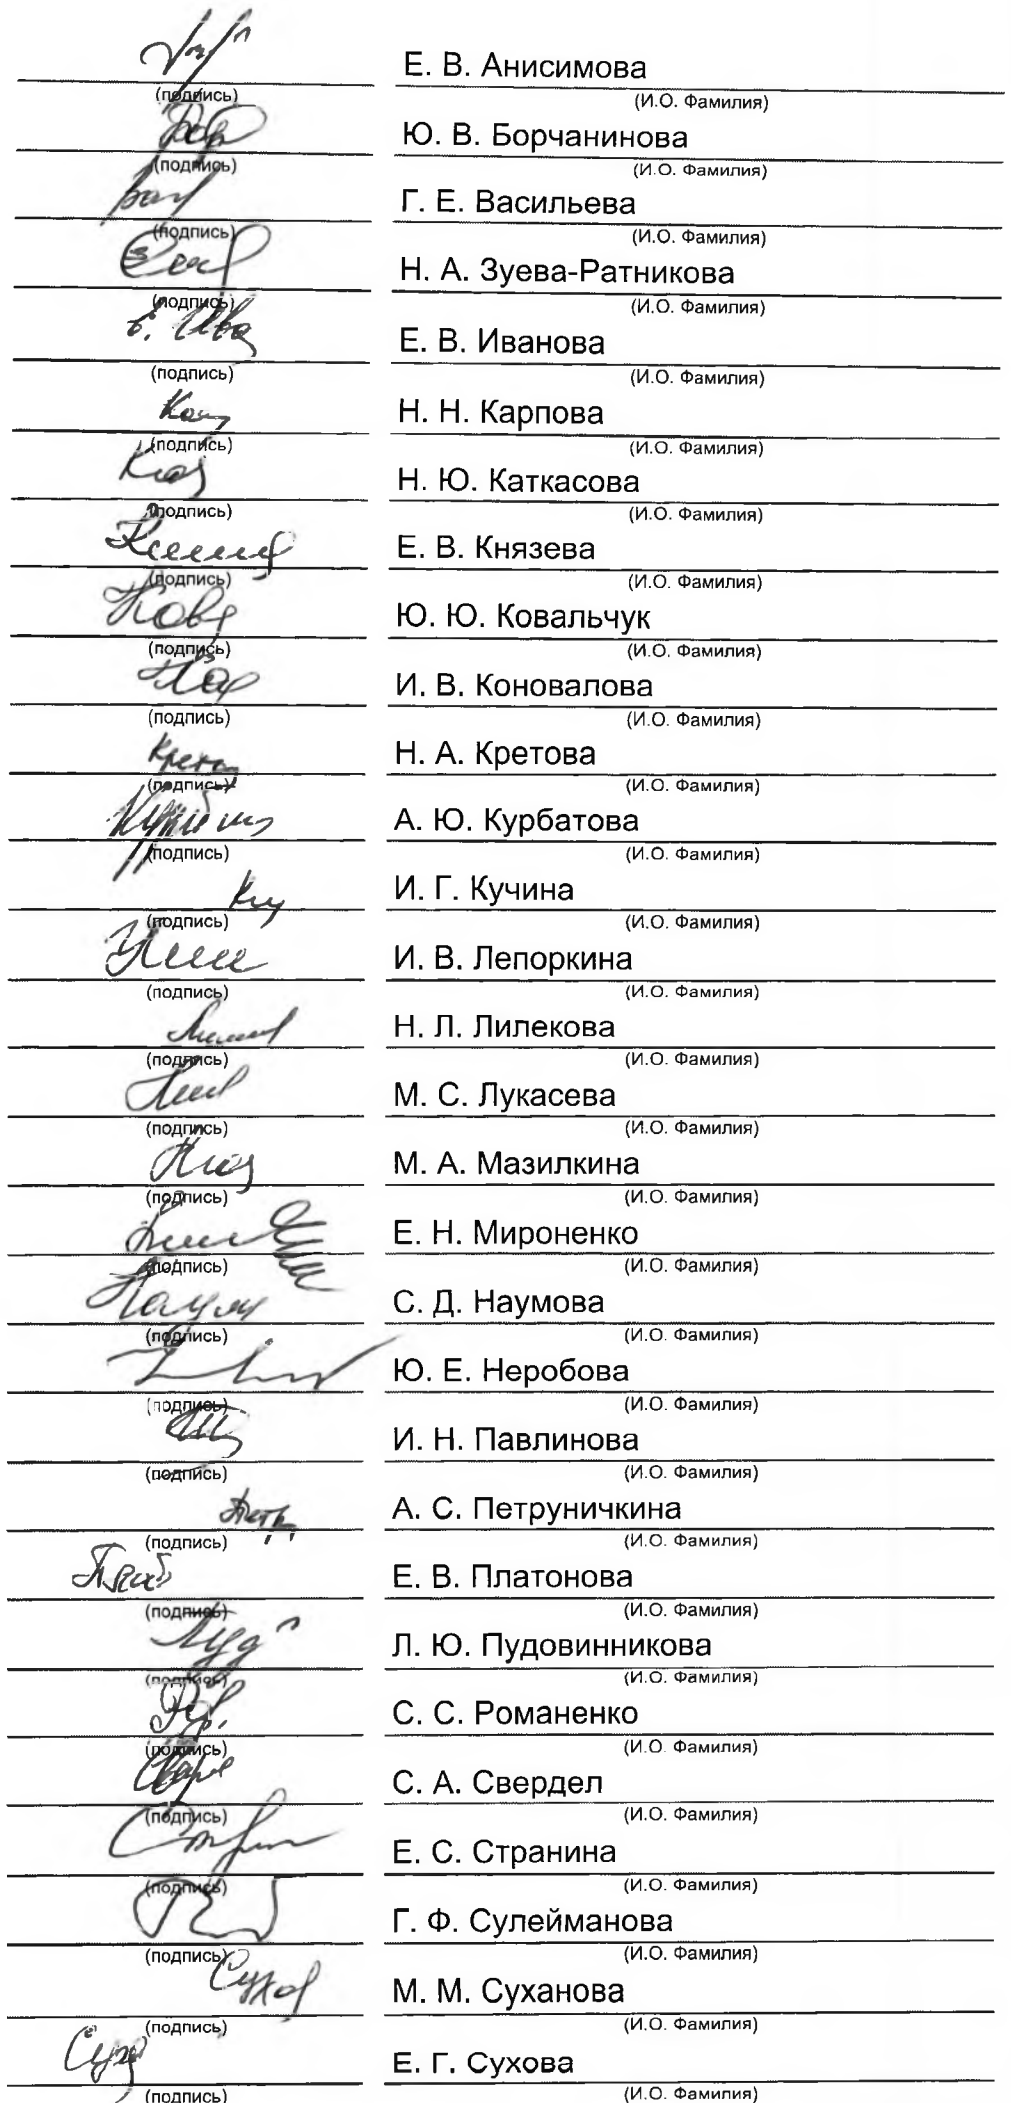 Е. В. Анисимова
(подпись) (И.О. Фамилия)
Ю. В. Борчанинова
(подпись) (И.О. Фамилия)
Г. Е. Васильева
(подпись) (И.О. Фамилия)
Н. А. Зуева-Ратникова
(подпись) (И.О. Фамилия)
Е. В. Иванова
(подпись) (И.О. Фамилия)
Н. Н. Карпова
(подпись) (И.О. Фамилия)
Н. Ю. Каткасова
(подпись) (И.О. Фамилия)
Е. В. Князева
(подпись) (И.О. Фамилия)
Ю. Ю. Ковальчук
(подпись) (И.О. Фамилия)
И. В. Коновалова
(подпись) (И.О. Фамилия)
Н. А. Кретова
(подпись) (И.О. Фамилия)
А. Ю. Курбатова
(подпись) (И.О. Фамилия)
И. Г. Кучина
(подпись) (И.О. Фамилия)
И. В. Лепоркина
(подпись) (И.О. Фамилия)
Н. Л. Лилекова
(подпись) (И.О. Фамилия)
М. С. Лукасева
(подпись) (И.О. Фамилия)
М. А. Мазилкина
(подпись) (И.О. Фамилия)
Е. Н. Мироненко
(подпись) (И.О. Фамилия)
С. Д. Наумова
(подпись) (И.О. Фамилия)
Ю. Е. Неробова
(подпись) (И.О. Фамилия)
И. Н. Павлинова
(подпись) (И.О. Фамилия)
А. С. Петруничкина
(подпись) (И.О. Фамилия)
Е. В. Платонова
(подпись) (И.О. Фамилия)
Л. Ю. Пудовинникова
(подпись) (И.О. Фамилия)
С. С. Романенко
(подпись) (И.О. Фамилия)
С. А. Свердел
(подпись) (И.О. Фамилия)
Е. С. Странина
(подпись) (И.О. Фамилия)
Г. Ф. Сулейманова
(подпись) (И.О. Фамилия)
М. М. Суханова
(подпись) (И.О. Фамилия)
Е. Г. Сухова
(подпись) (И.О. Фамилия)